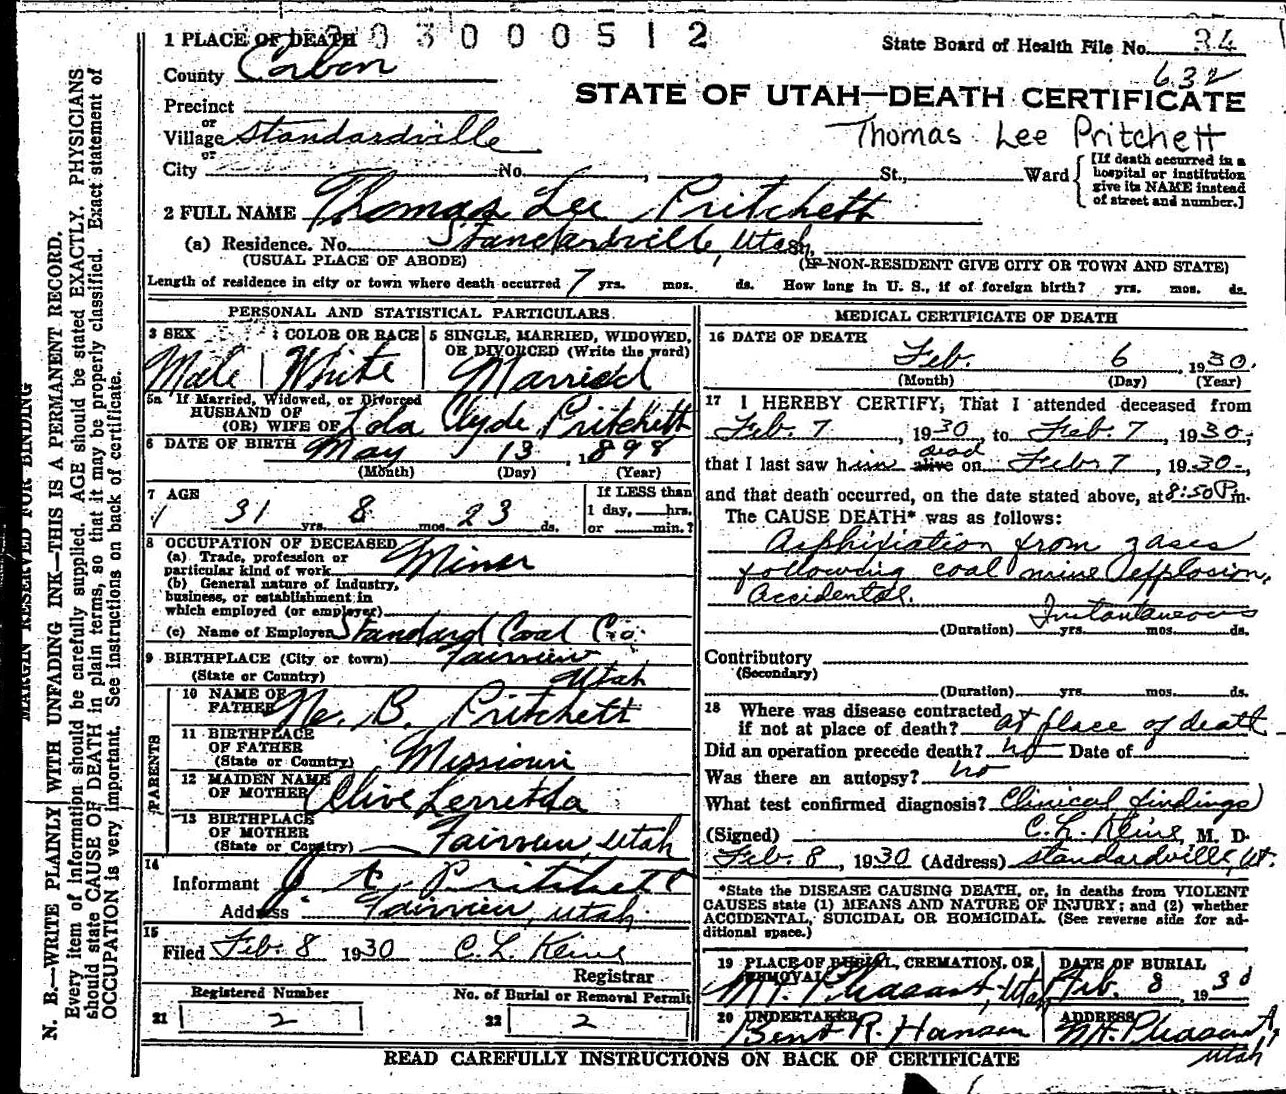 3 0 3 0 0 0 5 1 2
State Board of Health File No. 34
632
1 PLACE OF DEATH
County Carbon
STATE OF UTAH—DEATH CERTIFICATE
Precinct
or
Village Standardville
Thomas Lee Pritchett
or
City No. , St., Ward
[If death occurred in a
hospital or institution
give its NAME instead
of street and number.]
2 FULL NAME Thomas Lee Pritchett
(a) Residence. No. Standardville, Utah,
(USUAL PLACE OF ABODE) (IF NON-RESIDENT GIVE CITY OR TOWN AND STATE)
Length of residence in city or town where death occurred 7 yrs. mos. ds. How long in U. S., if of foreign birth? yrs. mos. ds.
PERSONAL AND STATISTICAL PARTICULARS
3 SEX
Male
4 COLOR OR RACE
White
5 SINGLE, MARRIED, WIDOWED,
OR DIVORCED (Write the word)
Married
5a If Married, Widowed, or Divorced
HUSBAND OF
(OR) WIFE OF Lola Clyde Pritchett
6 DATE OF BIRTH May 13, 1898
(Month) (Day) (Year)
7 AGE
31 yrs. 8 mos. 23 ds.
If LESS than
1 day, hrs.
or min.?
8 OCCUPATION OF DECEASED
(a) Trade, profession or
particular kind of work Miner
(b) General nature of industry,
business, or establishment in
which employed (or employer)
(c) Name of Employer Standard Coal Co.
9 BIRTHPLACE (City or town) Fairview
(State or Country) Utah
PARENTS
10 NAME OF
FATHER B. Pritchett
11 BIRTHPLACE
OF FATHER
(State or Country) Missouri
12 MAIDEN NAME
OF MOTHER Olive
13 BIRTHPLACE
OF MOTHER
(State or Country) Fairview, Utah
14
Informant Pritchett
Address Fairview, Utah
15
Filed Feb. 8 1930 C. L.
Registrar
Registered Number
21 2
No. of Burial or Removal Permit
22 2
MEDICAL CERTIFICATE OF DEATH
16 DATE OF DEATH
Feb. 6, 1930.
(Month) (Day) (Year)
17 I HEREBY CERTIFY, That I attended deceased from
Feb. 7, 1930, to Feb. 7, 1930;
dead
that I last saw him alive on Feb. 7, 1930,
and that death occurred, on the date stated above, at 8:50 P m.
The CAUSE DEATH* was as follows:
Asphixiation from gases
following coal mine explosion,
Accidental.
Instantaneous
(Duration) yrs. mos. ds.
Contributory
(Secondary)
(Duration) yrs. mos. ds.
18 Where was disease contracted
if not at place of death? at place of death
Did an operation precede death? no Date of
Was there an autopsy? no
What test confirmed diagnosis? Clinical findings
(Signed) C. L. , M. D.
Feb. 8, 1930 (Address) Standardville, Ut.
*State the DISEASE CAUSING DEATH, or, in deaths from VIOLENT
CAUSES state (1) MEANS AND NATURE OF INJURY; and (2) whether
ACCIDENTAL, SUICIDAL OR HOMICIDAL. (See reverse side for ad-
ditional space.)
19 PLACE OF BURIAL, CREMATION, OR
REMOVAL
Mt. Pleasant, Utah
DATE OF BURIAL
Feb. 8, 1930
20 UNDERTAKER
Bent R. Hansen
ADDRESS
Mt. Pleasant,
Utah
READ CAREFULLY INSTRUCTIONS ON BACK OF CERTIFICATE
MARGIN RESERVED FOR BINDING
N. B.—WRITE PLAINLY WITH UNFADING INK—THIS IS A PERMANENT RECORD.
Every item of information should be carefully supplied. AGE should be stated EXACTLY. PHYSICIANS
should state CAUSE OF DEATH in plain terms, so that it may be properly classified. Exact statement of
OCCUPATION is very important. See instructions on back of certificate.